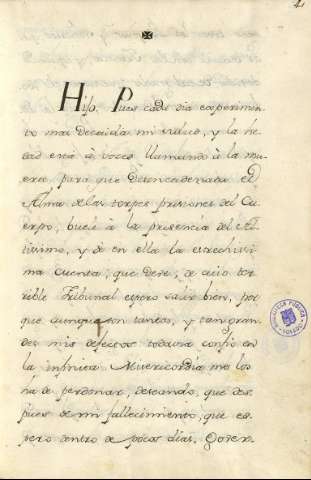 Hijo. Pues cada dia experimen-
to mas decaida mi salud, y la he-
dad està à voces llamando à la mu-
erte para que desencadenada el
Alma de las torpes prisiones del Cu-
erpo, buele à la presencia del Al-
tissimo, y dè en ella la estrechissi-
ma cuenta, que debe, de cuio ter-
rible Tribunal espero salir bien, por
que aunque son tantos, y tan gran-
des mis defectos todavia confio en
la infinita Misericordia me los
ha de perdonar, deseando, que des-
pues de mi fallecimiento, que es-
pero dentro de pocos dias, Gover-
BIBLIOTECA PUBLICA
TOLEDO